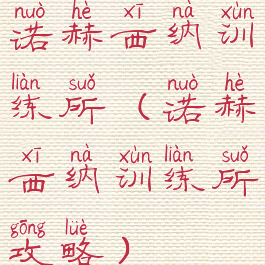 nuò hè xī nà xùn
诺赫西纳训
liàn suǒ nuò hè
练所（诺赫
xī nà xùn liàn suǒ
西纳训练所
gōng lüè
攻略）